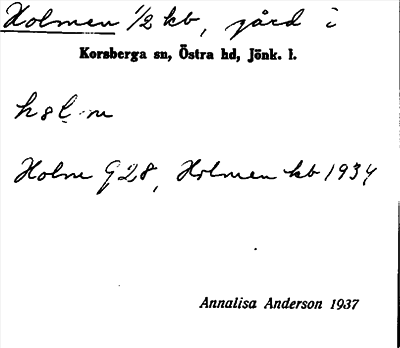 Holmen 1/2 kb, gård i
Korsberga sn, Östra hd, Jönk. l.
Holme G 28, Holmen kb 1934
Annalisa Anderson 1937